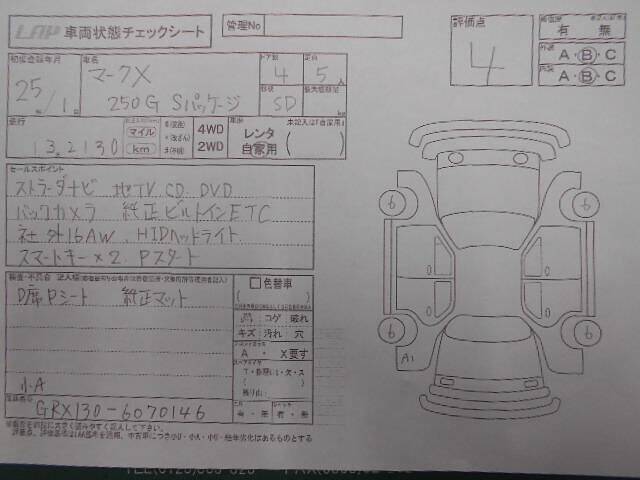 車両状態チェックシート
管理No
評価点
4
有 無
外装 A・B・C
内装 A・B・C
初度登録年月
25年/1月
車名
マークX
250G Sパッケージ
ドア数
4
定員
5人
形状
SD
走行
13,2130
マイル
km
4WD
2WD
車歴
レンタ
自家用
セールスポイント
ストラーダナビ 地TV.CD.DVD
バックカメラ 純正ビルトインETC
社外16AW.HIDヘッドライト
スマートキー×2.Pスタート
D席Pシート 純正マット
小A
GRX130-6070146
色替車
コゲ 破れ
キズ 汚れ 穴
A・X要す
有・無
有・無
6
6
6
6
A1